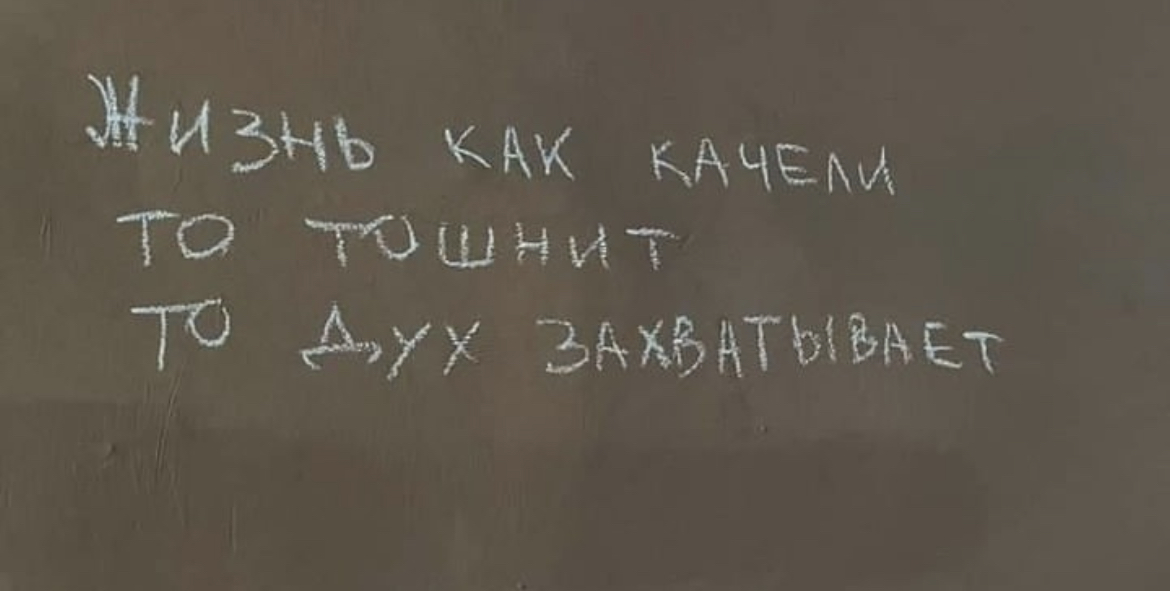 Жизнь как качели
то тошнит
то дух захватывает